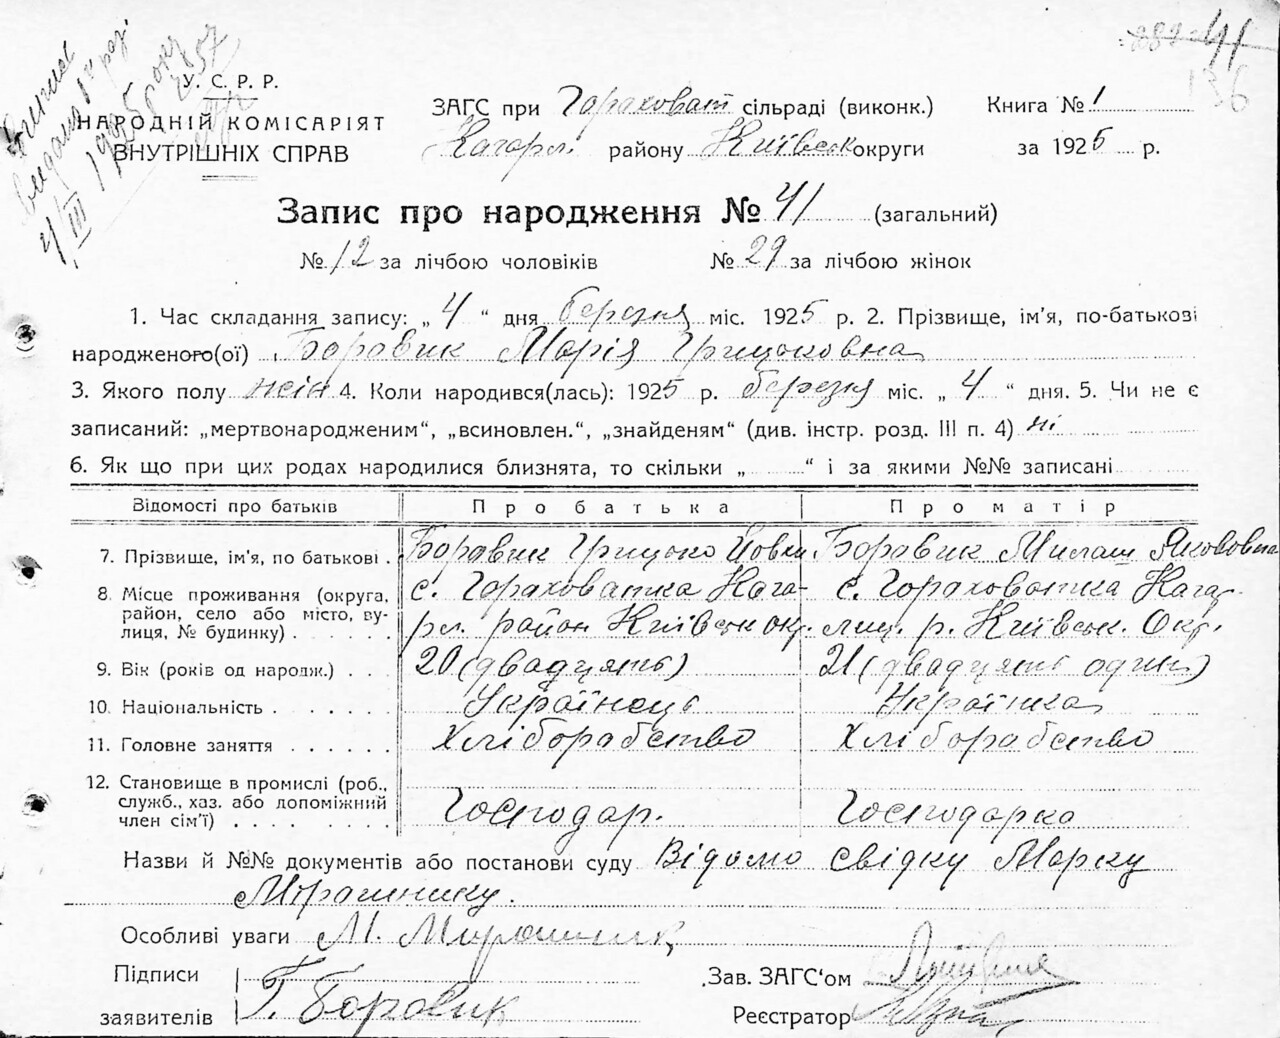 282 41
136
Виписка
видана в разі
4/III 1925 року
У. С. Р. Р.
НАРОДНІЙ КОМІСАРІЯТ
ВНУТРІШНІХ СПРАВ
ЗАГС при Гороховат сільраді (виконк.) Книга № 1
Кагарл. району Київськ округи за 1925 р.
Запис про народження № 41 (загальний)
№ 12 за лічбою чоловіків № 29 за лічбою жінок
1. Час складання запису: „ 4 “ дня березня міс. 1925 р. 2. Прізвище, ім'я, по-батькові
народженого(ої) Боровик Марія Грицьковна
3. Якого полу жін 4. Коли народився(лась): 1925 р. березня міс. „ 4 “ дня. 5. Чи не є
записаний: „мертвонародженим“, „всиновлен.“, „знайденям“ (див. інстр. розд. III п. 4) ні
6. Як що при цих родах народилися близнята, то скільки „ “ і за якими №№ записані
Відомості про батьків Про батька Про матір
7. Прізвище, ім'я, по батькові . Боровик Грицько Йовки Боровик Якововна
8. Місце проживання (округа, район, село або місто, вулиця, № будинку) . . . . . с. Гороховатка Кага- с. Гороховатка Кагар-
рл. район Київськ окр. лиц. р. Київськ. Окр.
9. Вік (років од народж.) . . . 20 (двадцять) 21 (двадцять один)
10. Національність . . . . . . Українець Українка
11. Головне заняття . . . . . . Хліборобство Хліборобство
12. Становище в промислі (роб., служб., хаз. або допоміжний член сім'ї) . . . . . . . Господар. Господарка
Назви й №№ документів або постанови суду Відомо свідку Марку
Мірошнику.
Особливі уваги М. Мирошник
Підписи
заявителів Г. Боровик
Зав. ЗАГС'ом
Реєстратор